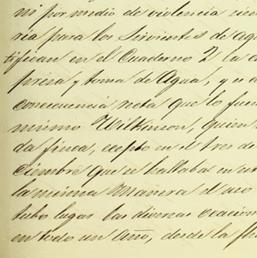 ni por medio de violencia sien
ria para los Sirvientes de aqu
tifican en el Cuaderno 2 la c
presa y toma de Agua, y es c
consecuencia nota que lo fue
mismo Wilkinson, quien
da finca, acepto en el tres de
ciembre que se hallaba en
la misma manera el uso
tubo lugar las diversas ocacion
en todo un año, desde la fh